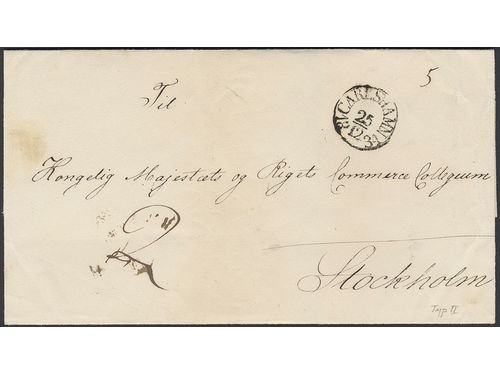 5
CARLSHAMN
25
12
1831
Til
Kongelig Majestæts og Rigets Commerce Collegium
Stockholm
Typ II